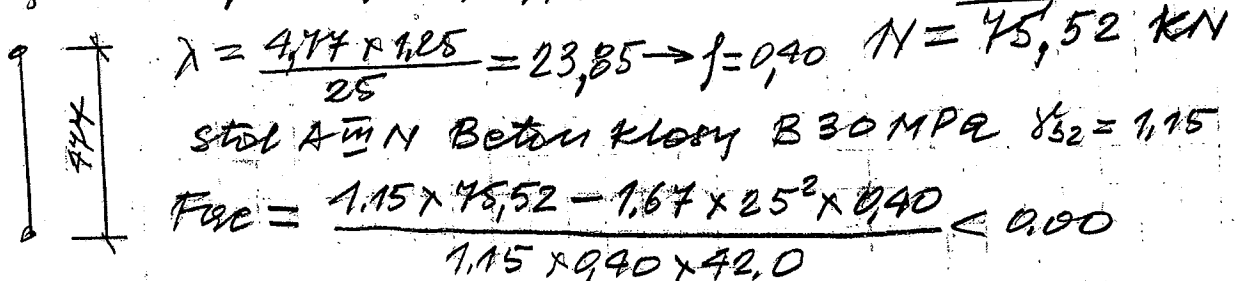 λ = 4,77 x 1,25 / 25 = 23,85 → f = 0,40 N = 75,52 KN
477
Stal A III N Beton klasy B 30 MPa γs2 = 1,15
Fac = 1.15 x 75,52 – 1,67 x 25² x 0,40 / 1,15 x 0,40 x 42,0 < 0.00